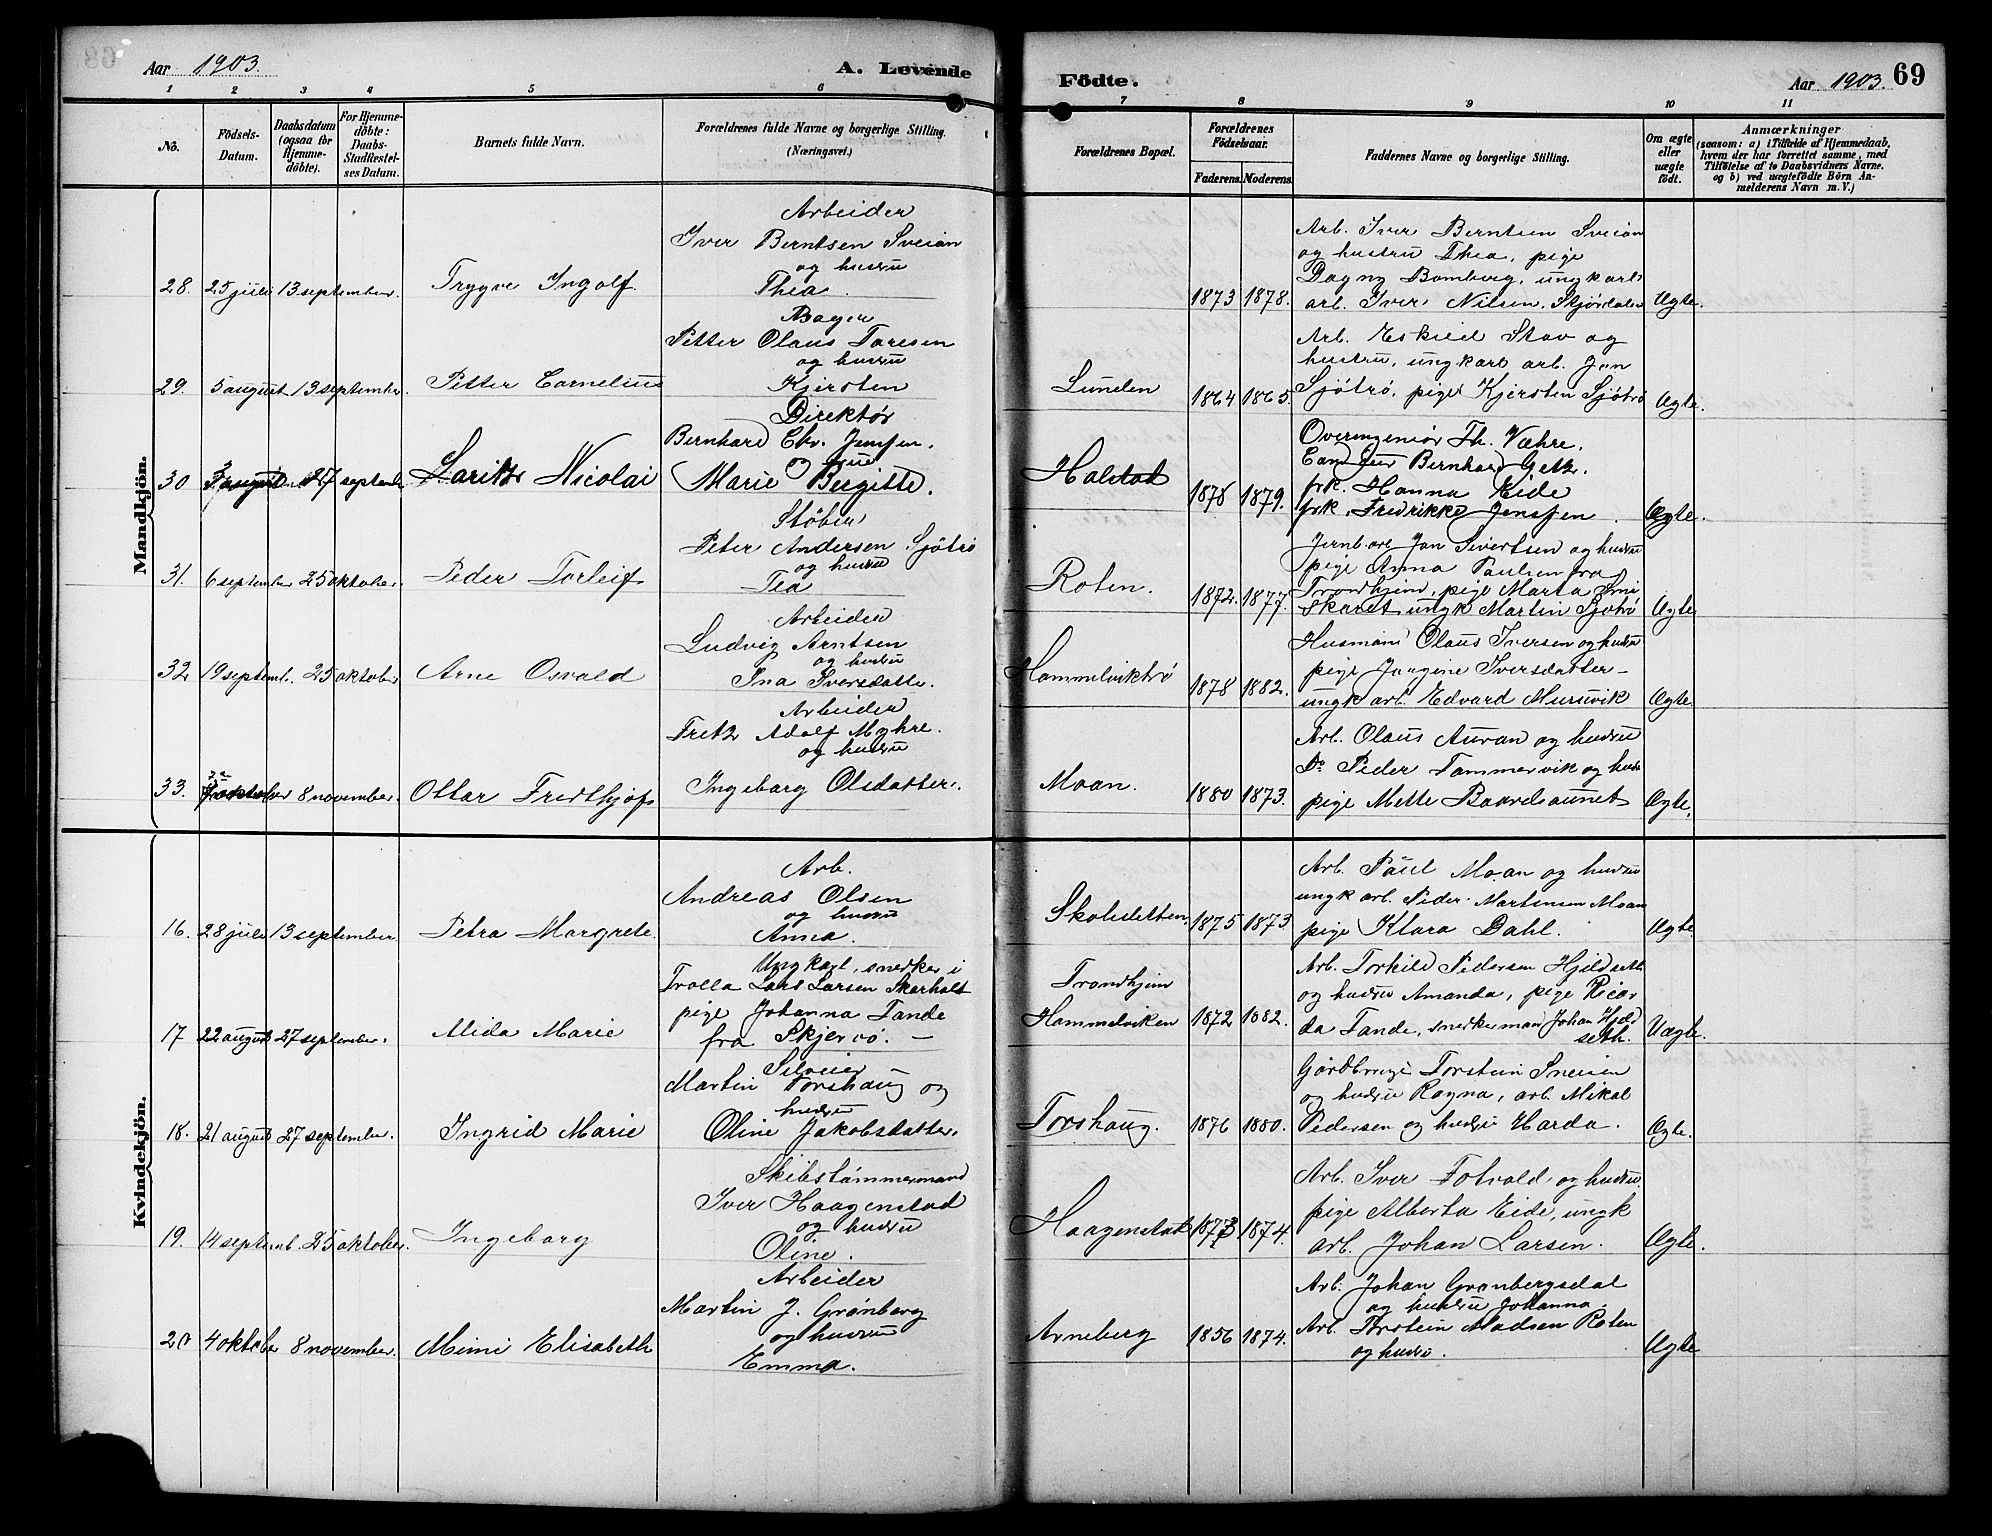 Aar 1903.
A. Levende
Födte.
Aar 1903. 69
1 2 3 4 5 6 7 8 9 10 11
No.
Födsels-
Datum.
Daabsdatum
(ogsaa for
Hjemme-
döbte).
For Hjemme-
döbte:
Daabs-
Stadfestel-
ses Datum.
Barnets fulde Navn.
Forældrenes fulde Navne og borgerlige Stilling.
(Næringsvei.)
Forældrenes Bopæl.
Forældrenes
Födselsaar.
Faderens. Moderens.
Faddernes Navne og borgerlige Stilling.
Om ægte
eller
uægte
födt.
Anmærkninger
(saasom: a) i Tilfælde af Hjemmedaab,
hvem der har forrettet samme, med
Tilföielse af to Daabsvidners Navne.
og b) ved uægtefödte Börn An-
melderens Navn m. V.)
Mandkjön.
Arbeider
Iver Berntsen Sveian
og hustru
28. 25 juli 13 september. Trygve Ingolf Thea.
1873 1878.
Arb. Iver Berntsen Sveian
og hustru Thea, pige
Dagny Bomberg, ungkarl
arb. Iver Nilsen, Skjørdalen
Ægte.
Bager
Petter Olaus Taresen
og hustru
29. 5 august 13 september. Petter Cornelius Kjersten
Lunden 1864 1865.
Arb. Eskild Stav og
hustru, ungkarl arb. Jon
Sjøtrø, pige Kjersten Sjøtrø
Ægte.
Direktør
Bernhard Chr. Jenssen.
og
30 august 27 september Nicolai Marie Birgitte.
Halstad 1878 1879.
Overingeniør Th. Væhre.
Cand jur Bernhard Getz.
frk. Hanna Eide
frk. Fredrikke Jenssen.
Ægte.
Støber
Peter Andersen Sjøtrø
og hustru
31. 6 september 25 oktober. Peder Torleif Tea
Roten. 1872. 1877.
Jernb. arb Jon Sivertsen og hustru
pige Anna Paulsen fra
Trondhjem, pige Marta
skaret ungk Martin Sjøtrø
Ægte
Arbeider
Ludvig Arntsen
og hustru
32 19 septemb. 25 oktober Arne Osvald Ina Iversdatter.
Hammelviktrø 1878 1882.
Husmand Olaus Iversen og hustru
pige Jørgine Iversdatter –
ungk arb. Edvard Mursvik
Ægte
Arbeider
Fretz Adolf Myhre.
og hustru
33. oktober 8 november. Ottar Fredthjof Ingeborg Olsdatter.
Moan. 1880 1873.
Arb. Olaus Auran og hustru
Do Peder Tammesvik og hustr
pige Mette Baardsaunet
Ægte.
Kvindekjön.
Arb.
Andreas Olsen
og hustru
16. 28 juli 13 september Petra Margrete. Anna.
Skolesletten. 1875 1873
Arb. Paul Moan og hustru
ungk arb. Peder Martinsen Moan
pige Klara Dahl.
Ægte.
Ungkarl, snedker i
Trolla Lars Larsen Skarholt
pige Johanna Tande
17 22 august 27 september. Alida Marie fra Skjervø. –
Trondhjem
Hammelviken 1872 1882.
Arb. Torkild Pedersen Hjeldseth
og hustru Amanda, pige Ricar
da Tande, snedker mand Johan Hjeld
seth.
Uægte.
Selveier
Martin Torshaug og
hustru
18. 21 august 27 september. Ingrid Marie Oline Jakobsdatter.
Torshaug. 1876 1880.
Gardbruger Torstein Sveian
og hustru Ragna, arb. Mikal
Pedersen og hustru Harda.
Ægte.
Skibstømmermand
Iver Haagenstad
og hustru
19. 14 septemb. 25 oktober. Ingeborg Oline.
Haagenstad 1873 1874.
Arb. Iver Fotvold og hustru
pige Alberta Eide, ungk
arb. Johan Larsen.
Ægte.
Arbeider
Martin J. Grønberg
og hustru
20 4 oktober 8 november. Mimi Elisabeth Emma.
Arneberg 1856 1874.
Arb. Johan Grønbergsdal
og hustru Johanna.
Arb. Torstein Madsen Roten
og hustru.
Ægte